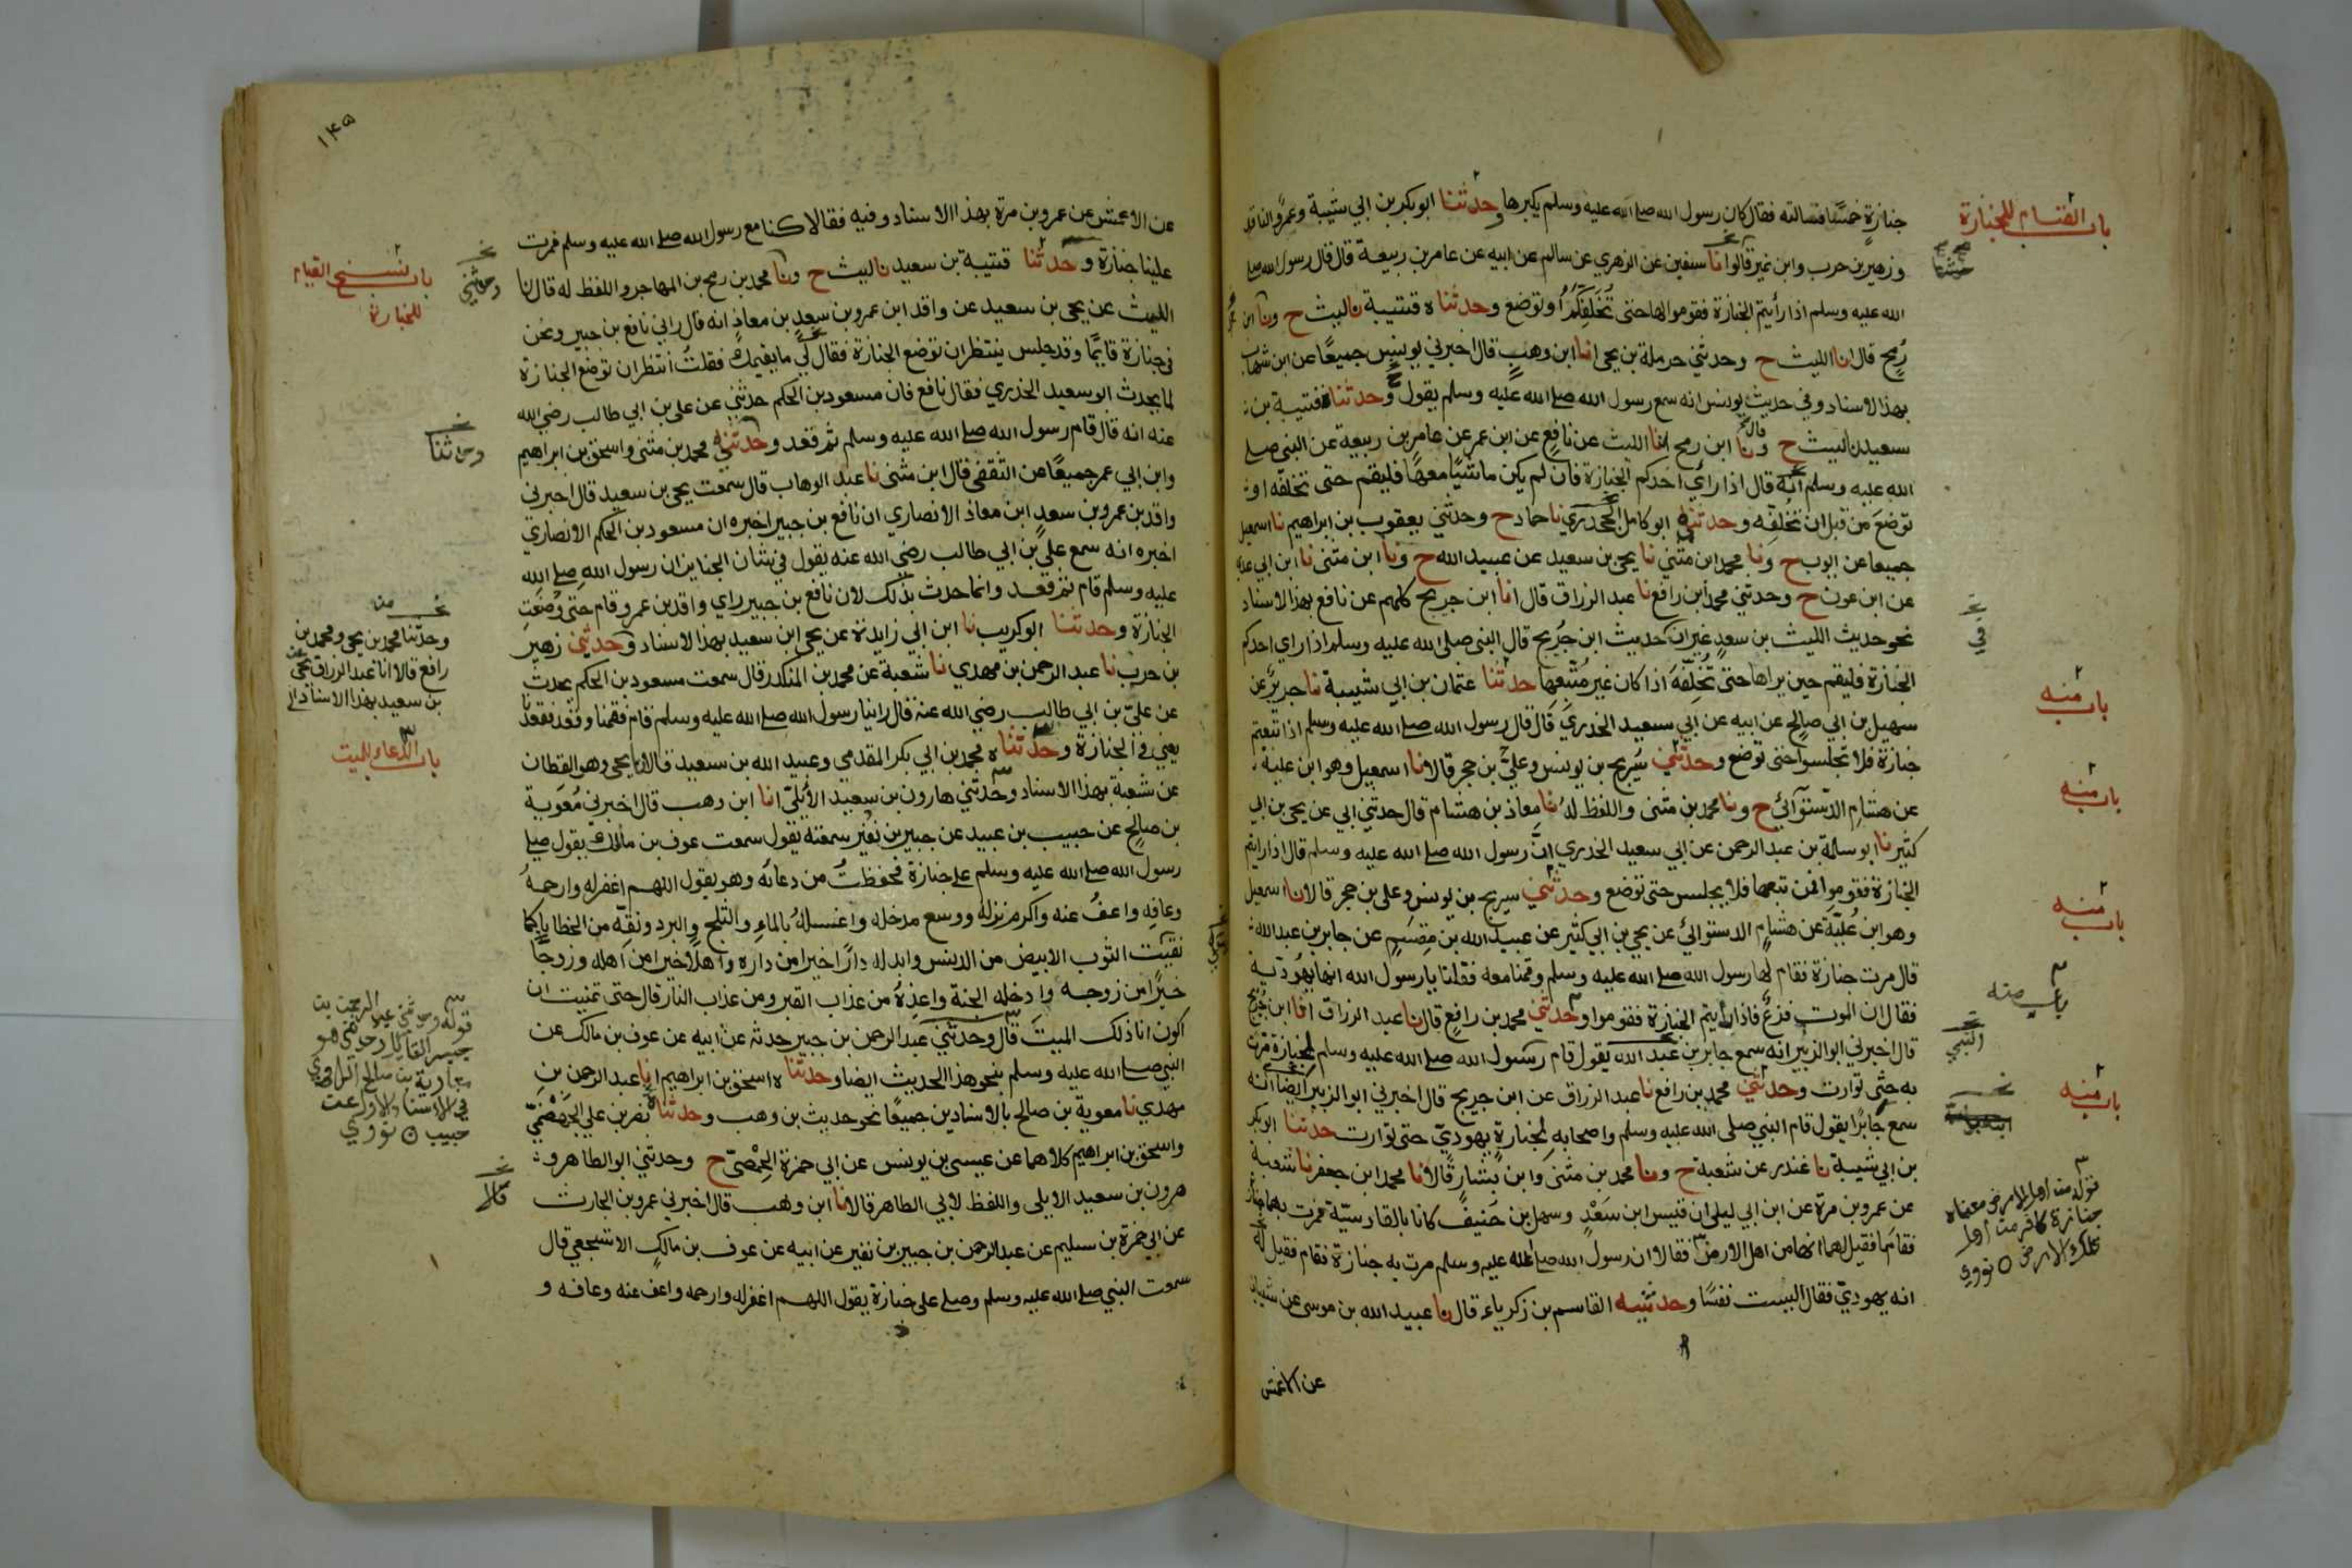 باب القيام للجنازة
جنازةٍ خمسًا فسالته فقال كان رسول الله صلى الله عليه وسلم يكبرها وحدثنا ابو بكر بن ابي شيبة وعمرو الناقد
وزهير بن حرب وابن نمير قالوا نا سفين عن الزهري عن سالم عن ابيه عن عامر بن ربيعة قال قال رسول الله صلى
الله عليه وسلم اذا رأيتم الجنازة فقوموا لها حتى تُخَلِّفَكُم او توضع وحدثناه قتيبة نا ليث ح ونا ابن
رُمح قال انا الليث ح وحدثني حرملة بن يحيى انا ابن وهبٍ قال اخبرني يونس جميعًا عن ابن شهاب
بهذا الاسناد وفي حديث يونس انه سمع رسول الله صلى الله عليه وسلم يقول وحدثنا قتيبة بن
سعيد نا ليث ح ونا ابن رمح انا الليث عن نافع عن ابن عمر عن عامر بن ربيعة عن النبي صلى
الله عليه وسلم انه قال اذا رأى احدكم الجنازة فان لم يكن ماشيًا معها فليقم حتى تخلفه او
توضع من قبل ان تخلفه وحدثني ابو كامل الجحدري نا حماد ح وحدثني يعقوب بن ابراهيم نا اسمعيل
جميعا عن ايوب ح ونا محمد ابن مثني نا يحيى بن سعيد عن عبيد الله ح ونا ابن مثنى نا ابن ابي عدي
عن ابن عون ح وحدثني محمد ابن رافع نا عبد الرزاق قال انا ابن جريج كلهم عن نافع بهذا الاسناد
نحو حديث الليث بن سعدٍ غير ان حديث ابن جُرَيج قال النبي صلى الله عليه وسلم اذا راى احدكم
باب منه
الجنازة فليقم حين يراها حتى تُخَلِّفَهُ اذا كان غير مُتَّبِعِها حدثنا عثمان بن ابي شيبة نا جرير عن
سهيل بن ابي صالح عن ابيه عن ابي سعيد الخدري قال قال رسول الله صلى الله عليه وسلم اذا تبعتم
باب منه
جنازة فلا تجلسوا حتى توضع وحدثني سُريج بن يونس وعليُّ بن حجر قالا نا اسمعيل وهو ابن علية
عن هشام الدستوائي ح ونا محمد بن مثنى واللفظ له نا معاذ بن هشام قال حدثني ابي عن يحيى بن ابي
كثير نا ابو سلمة بن عبد الرحمن عن ابي سعيد الخدري انَّ رسول الله صلى الله عليه وسلم قال اذا رايتم
باب منه
الجنازة فقوموا فمن تبعها فلا يجلس حتى توضع وحدثني سريج بن يونس وعلى بن حجر قالا نا اسمعيل
وهو ابن عُليَّة عن هشام الدستوائي عن يحيى بن ابي كثير عن عبيد الله بن مقسم عن جابر بن عبد الله
قال مرت جنازة فقام لها رسول الله صلى الله عليه وسلم وقمنا معه فقلنا يا رسول الله انها يهودية
باب منه
فقال ان الموت فزعٌ فاذا رأيتم الجنازة فقوموا وحدثني محمد بن رافع قال نا عبد الرزاق انا ابن جريج
النبي
قال اخبرني ابو الزبير انه سمع جابر بن عبد الله يقول قام رسول الله صلى الله عليه وسلم لجنازة مرت
باب منه
به حتى توارت وحدثني محمد بن رافع نا عبد الرزاق عن ابن جريج قال اخبرني ابو الزبير ايضا انه
سمع جابرًا يقول قام النبي صلى الله عليه وسلم واصحابه لجنازةٍ يهوديّ حتى توارت حدثنا ابو بكر
بن ابي شيبة نا غندر عن شعبة ح ونا محمد بن مثنى وابن بشار قالا نا محمد ابن جعفر نا شعبة
عن عمرو بن مرة عن ابن ابي ليلى ان قيس ابن سَعْدٍ وسهل بن حَنيف كانا بالقادسيّة فمرت بهما جنازة
فقاما فقيل لهما انها من اهل الارض فقالا ان رسول الله صلى الله عليه وسلم مرت به جنازة فقام فقيل له
انه يهوديّ فقال اليست نفسًا وحدثنيه القاسم بن زكرياء قال نا عبيد الله بن موسى عن شيبان
قوله من اهل الارض معناه
جنازة كافر من اهل
تلك الارض ه نووي
عن الاعمش
١٤٥
عن الاعمش عن عمرو بن مرة بهذا الاسناد وفيه فقالا كنا مع رسول الله صلى الله عليه وسلم فمرت
باب نسخ القيام
للجنازة
وحدثني
علينا جنازة وحدثنا قتيبة بن سعيد نا ليث ح ونا محمد بن رمح بن المهاجر واللفظ له قال نا
الليث عن يحيى بن سعيد عن واقد ابن عمرو بن سعد بن معاذٍ انه قال راني نافع بن جبير ونحن
في جنازة قايمًا وقد جلس ينتظر ان توضع الجنازة فقال لي ما يقيمك فقلت أنتظر ان توضع الجنازة
لما يحدث ابو سعيد الخدري فقال نافع فان مسعود بن الحكم حدثني عن على بن ابي طالب رضي الله
عنه انه قال قام رسول الله صلى الله عليه وسلم ثم قعد وحدثني محمد بن مثنى واسحق بن ابراهيم
وحدثنا
وابن ابي عمر جميعًا عن الثقفي قال ابن مثنى نا عبد الوهاب قال سمعت يحيى بن سعيد قال اخبرني
واقد بن عمرو بن سعدٍ ابن معاذ الانصاري ان نافع بن جبير اخبره ان مسعود بن الحكم الانصاري
اخبره انه سمع عليَّ بن ابي طالب رضي الله عنه يقول في شان الجنايز ان رسول الله صلى الله
عليه وسلم قام ثم قعد وانما حدث بذلك لان نافع بن جبير راي واقد بن عمرو قام حتى وُضعت
الجنازة وحدثنا ابو كريب نا ابن ابي زايدة عن يحيى ابن سعيد بهذا الاسناد وحدثني زهير
وحدثنا محمد بن يحيى ومحمد بن
رافع قالا انا عبد الرزاق عن يحيى
بن سعيد بهذا الاسناد
بن حرب نا عبد الرحمن بن مهدي نا شعبة عن محمد بن المنكدر قال سمعت مسعود بن الحكم يحدث
عن عليّ بن ابي طالب رضي الله عنه قال راينا رسول الله صلى الله عليه وسلم قام فقمنا وقعد فقعدنا
باب الدعاء للميت
يعني في الجنازة وحدثناه محمد بن ابي بكر المقدمي وعبيد الله بن سعيد قالا نا يحيى وهو القطان
عن شعبة بهذا الاسناد وحدثني هارون بن سعيد الأيليّ انا ابن وهب قال اخبرني مُعٰوية
بن صالح عن حبيب بن عبيد عن جبير بن نفير سمعته يقول سمعت عوف بن مالك يقول صلى
رسول الله صلى الله عليه وسلم على جنازة فحفظتُ من دعائه وهو يقول اللهم اغفر له وارحمهُ
وعافه واعفُ عنه واكرم نزله ووسع مدخله واغسلهُ بالماءِ والثلج والبرد ونقه من الخطايا كما
نقيت الثوب الابيض من الدنس وابدله دارًا خيرا من داره واهلًا خيرا من اهله وزوجًا
خيرًا من زوجه وادخله الجنة واعذِهُ من عذاب القبر ومن عذاب النار قال حتى تمنيت ان
اكون انا ذلك الميت قال وحدثني عبد الرحمن بن جبير حدثه عن ابيه عن عوف بن مالك عن
قوله وحدثني عبد الرحمن بن
جبير القايل وحدثني هو
معاوية بن صالح الراوي
في الاسناد الاول عن
حبيب ه نووي
النبي صلى الله عليه وسلم بنحو هذا الحديث ايضا وحدثناه اسحق بن ابراهيم انا عبد الرحمن بن
مهدي نا معوية بن صالح بالاسنادين جميعًا نحو حديث بن وهب وحدثنا نصر بن علي الجَهْضَميّ
واسحق بن ابراهيم كلاهما عن عيسى بن يونس عن ابي حمزة الحِمْصىّ ح وحدثني ابو الطاهر و
قالا
هرون بن سعيد الايلي واللفظ لابي الطاهر قالا نا ابن وهب قال اخبرني عمرو بن الحارث
عن ابي حمزة بن سليم عن عبد الرحمن بن جبير بن نفير عن ابيه عن عوف بن مالكٍ الاشجعي قال
سمعت النبي صلى الله عليه وسلم وصلى على جنازة يقول اللهم اغفر له وارحمه واعف عنه وعافه و